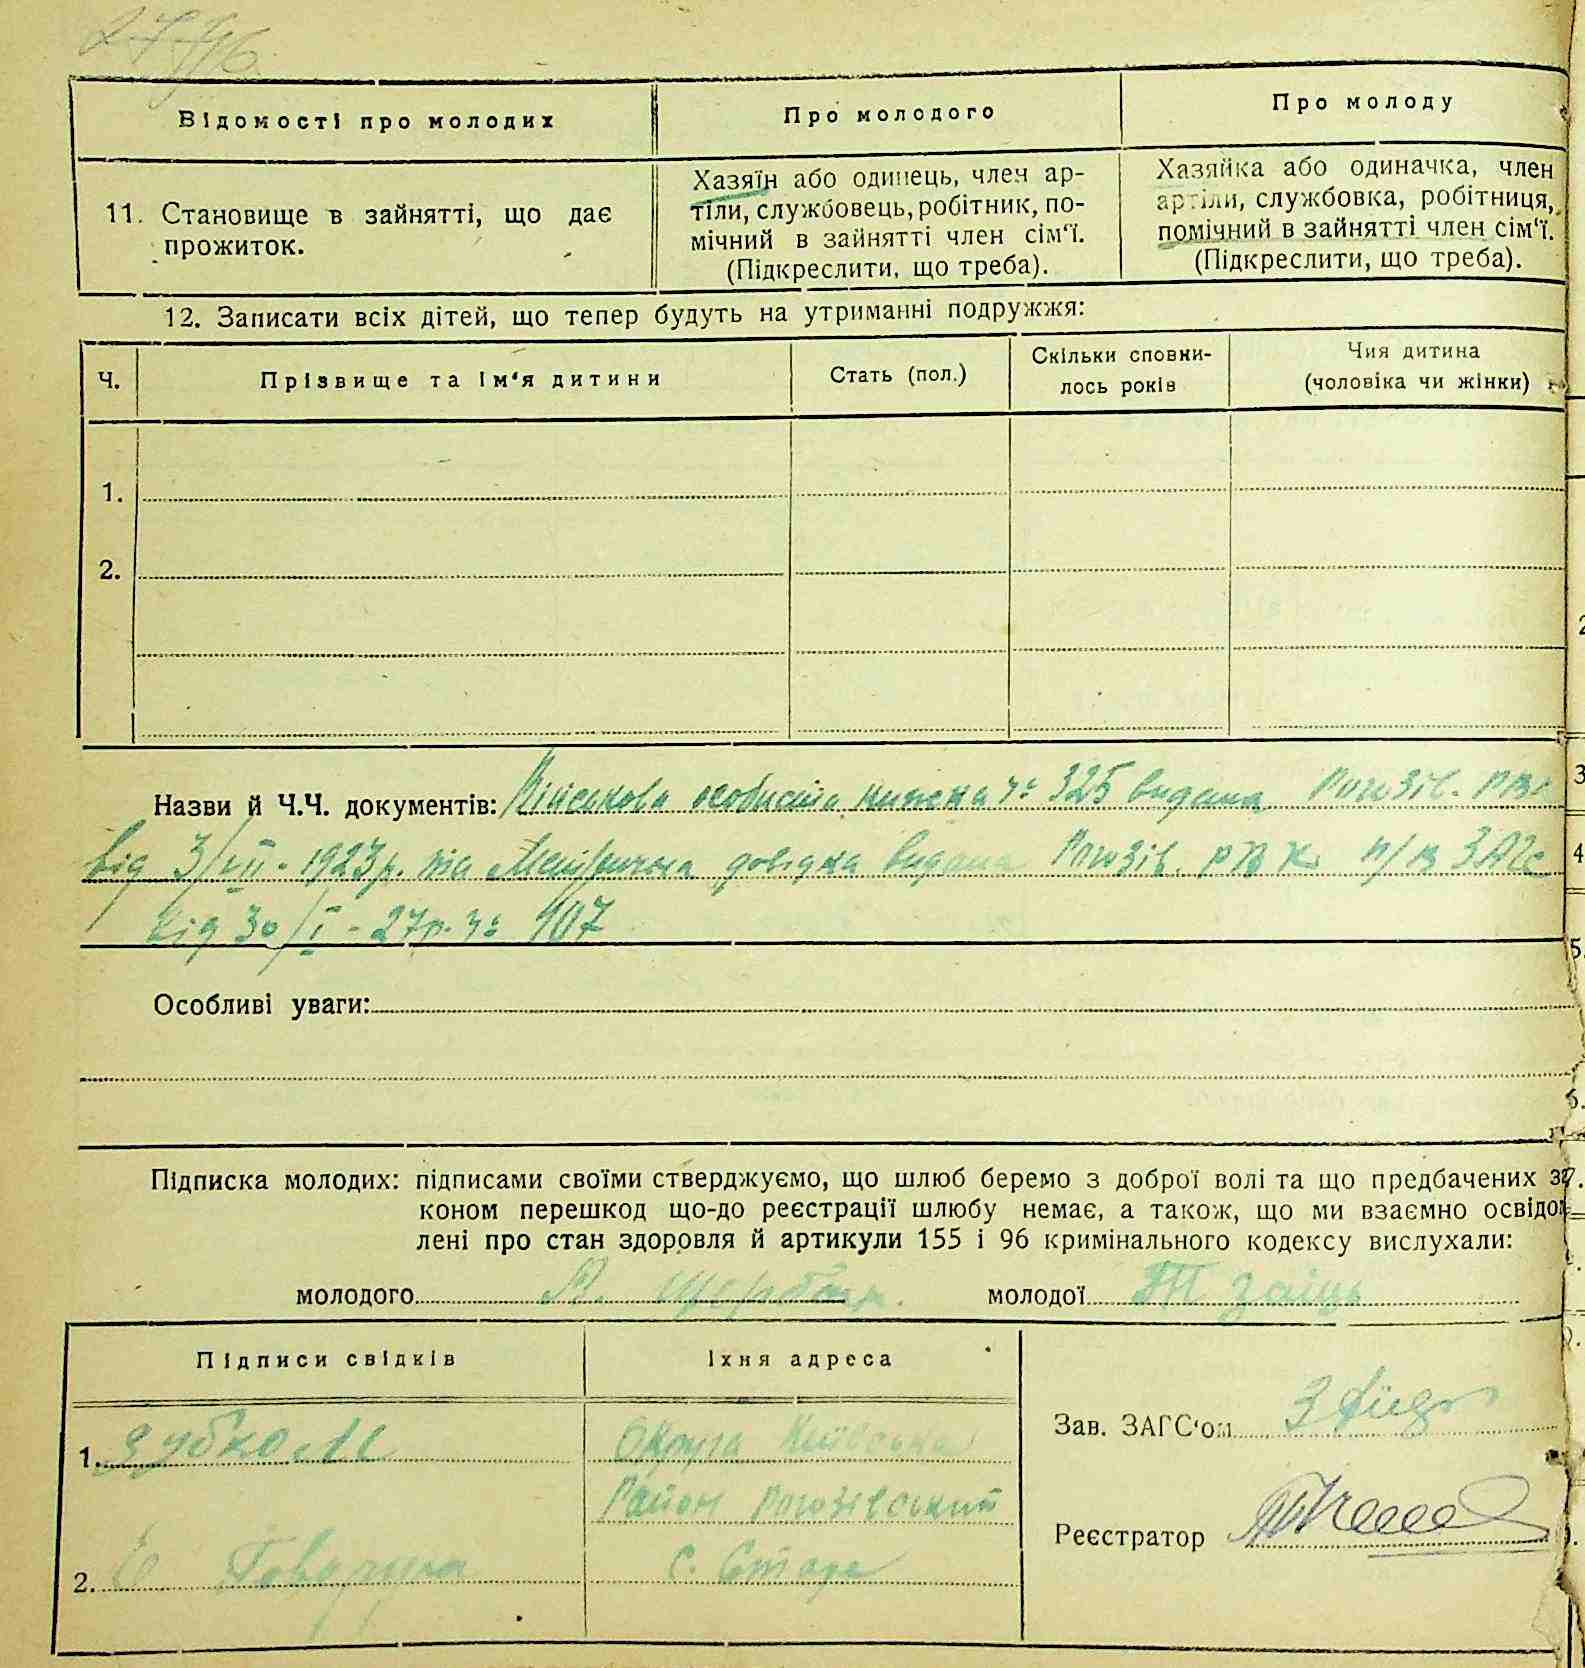 Відомості про молодих
Про молодого
Про молоду
11. Становище в зайнятті, що дає
прожиток.
Хазяїн або одинець, член ар-
тіли, службовець, робітник, по-
мічний в зайнятті член сім'ї.
(Підкреслити, що треба).
Хазяйка або одиначка, член
артіли, службовка, робітниця,
помічний в зайнятті член сім'ї.
(Підкреслити, що треба).
12. Записати всіх дітей, що тепер будуть на утриманні подружжя:
Ч.
Прізвище та ім'я дитини
Стать (пол.)
Скільки сповни-
лось років
Чия дитина
(чоловіка чи жінки)
1.
2.
Назви й Ч.Ч. документів: Військова особиста книжка ч: 325 видана Рогозів.
від 3/VII - 1923 р. та Метрична довідка видана Рогозів. РВК п/в ЗАГС
від 30/I - 27 р. ч: 107
Особливі уваги:
Підписка молодих: підписами своїми стверджуємо, що шлюб беремо з доброї волі та що предбачених за
коном перешкод що-до реєстрації шлюбу немає, а також, що ми взаємно освідом
лені про стан здоровля й артикули 155 і 96 кримінального кодексу вислухали:
молодого А. Щербак. молодої Т Заїць
Підписи свідків
Їхня адреса
1.
Округа Київська
Район Рогозівський
2. Е
с. Старе
Зав. ЗАГС'ом
Реєстратор